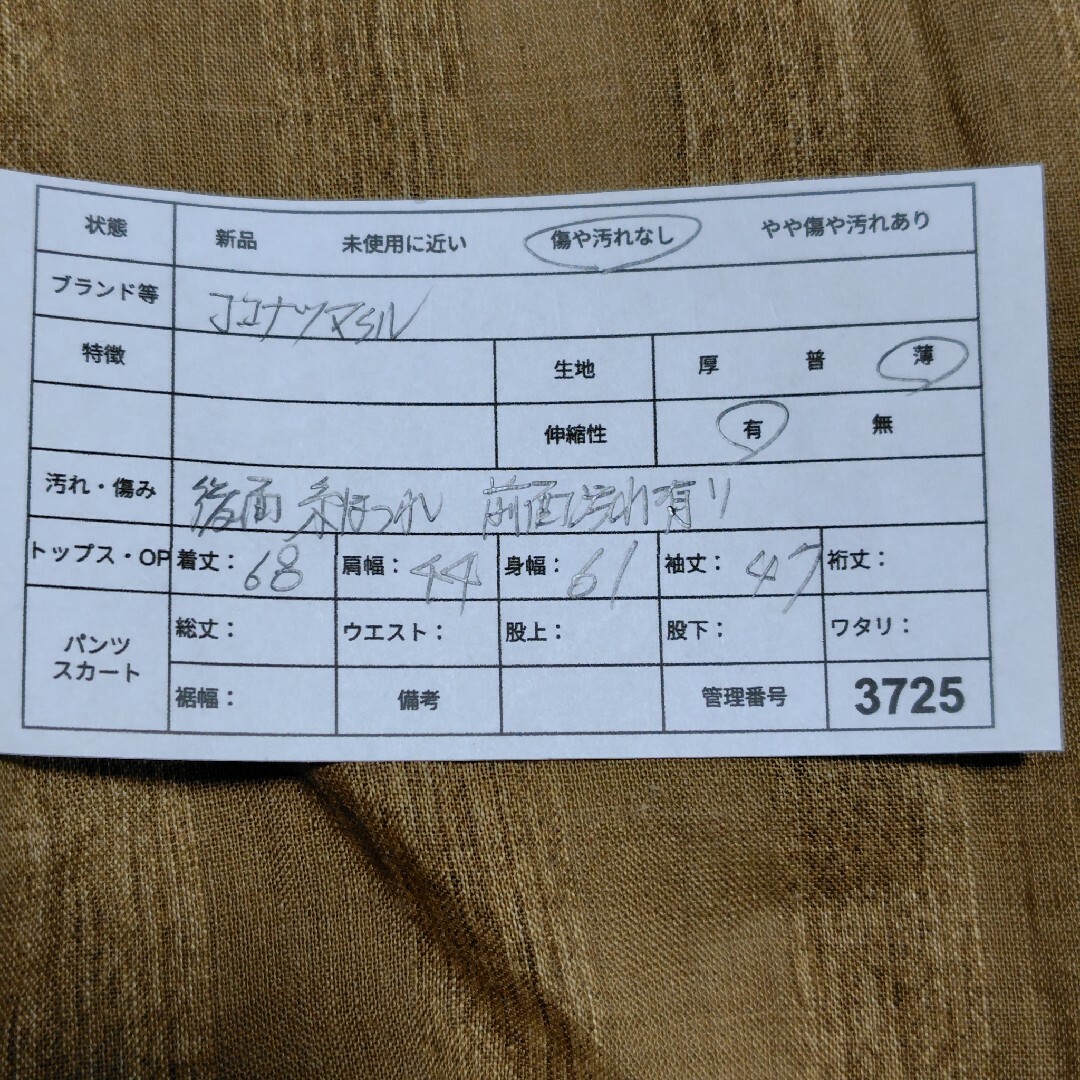 状態 新品 未使用に近い 傷や汚れなし やや傷や汚れあり
ブランド等 ココナツマSル
特徴 生地 厚 普 薄
伸縮性 有 無
汚れ・傷み 後面 糸ほつれ 前面汚れ有り
トップス・OP 着丈:68 肩幅:44 身幅:61 袖丈:47 裄丈:
パンツ スカート 総丈: ウエスト: 股上: 股下: ワタリ:
裾幅: 備考 管理番号 3725